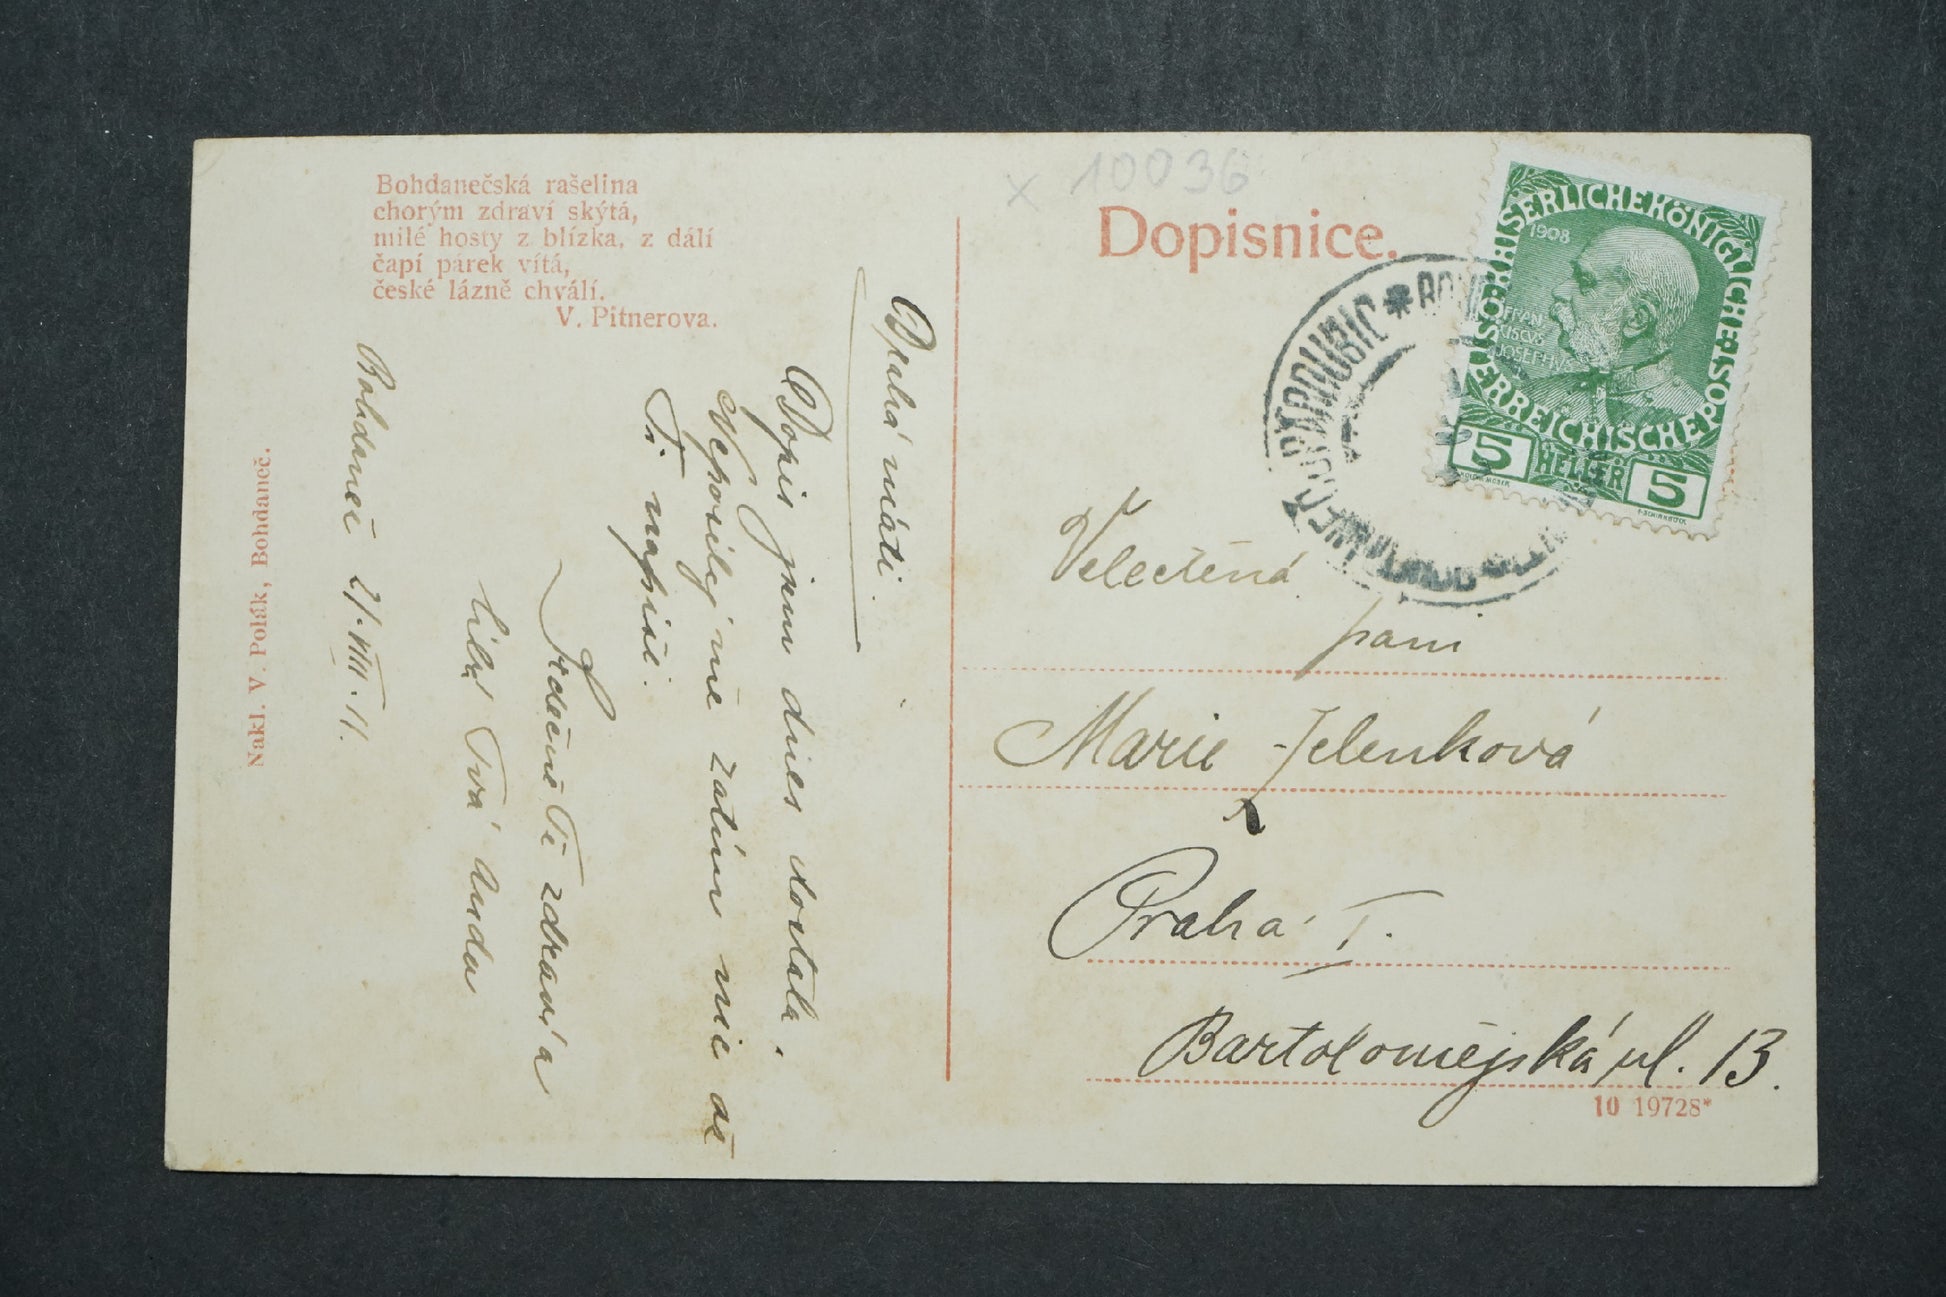 Bohdanečská rašelina
chorým zdraví skýtá,
milé hosty z blízka, z dálí
čapí párek vítá,
české lázně chválí.
V. Pitnerova.
Nakl. V. Polák, Bohdaneč.
Bohdaneč 2/VIII. 11.
Drahá máti.
Dopis jsem dnes dostala.
Neposílej mě zatím nic až
Ti napíši.
Srdečně Tě zdraví a
líbá Tvá Anda
x 10036
Dopisnice.
Velectěná
paní
Marie Jelenková
Praha I.
Bartolomějská ul. 13.
10 19728*
KAISERLICHE KÖNIGLICHE ÖSTERREICHISCHE POST
1908
FRAN
CISCUS
JOSEPHUS
5 HELLER 5